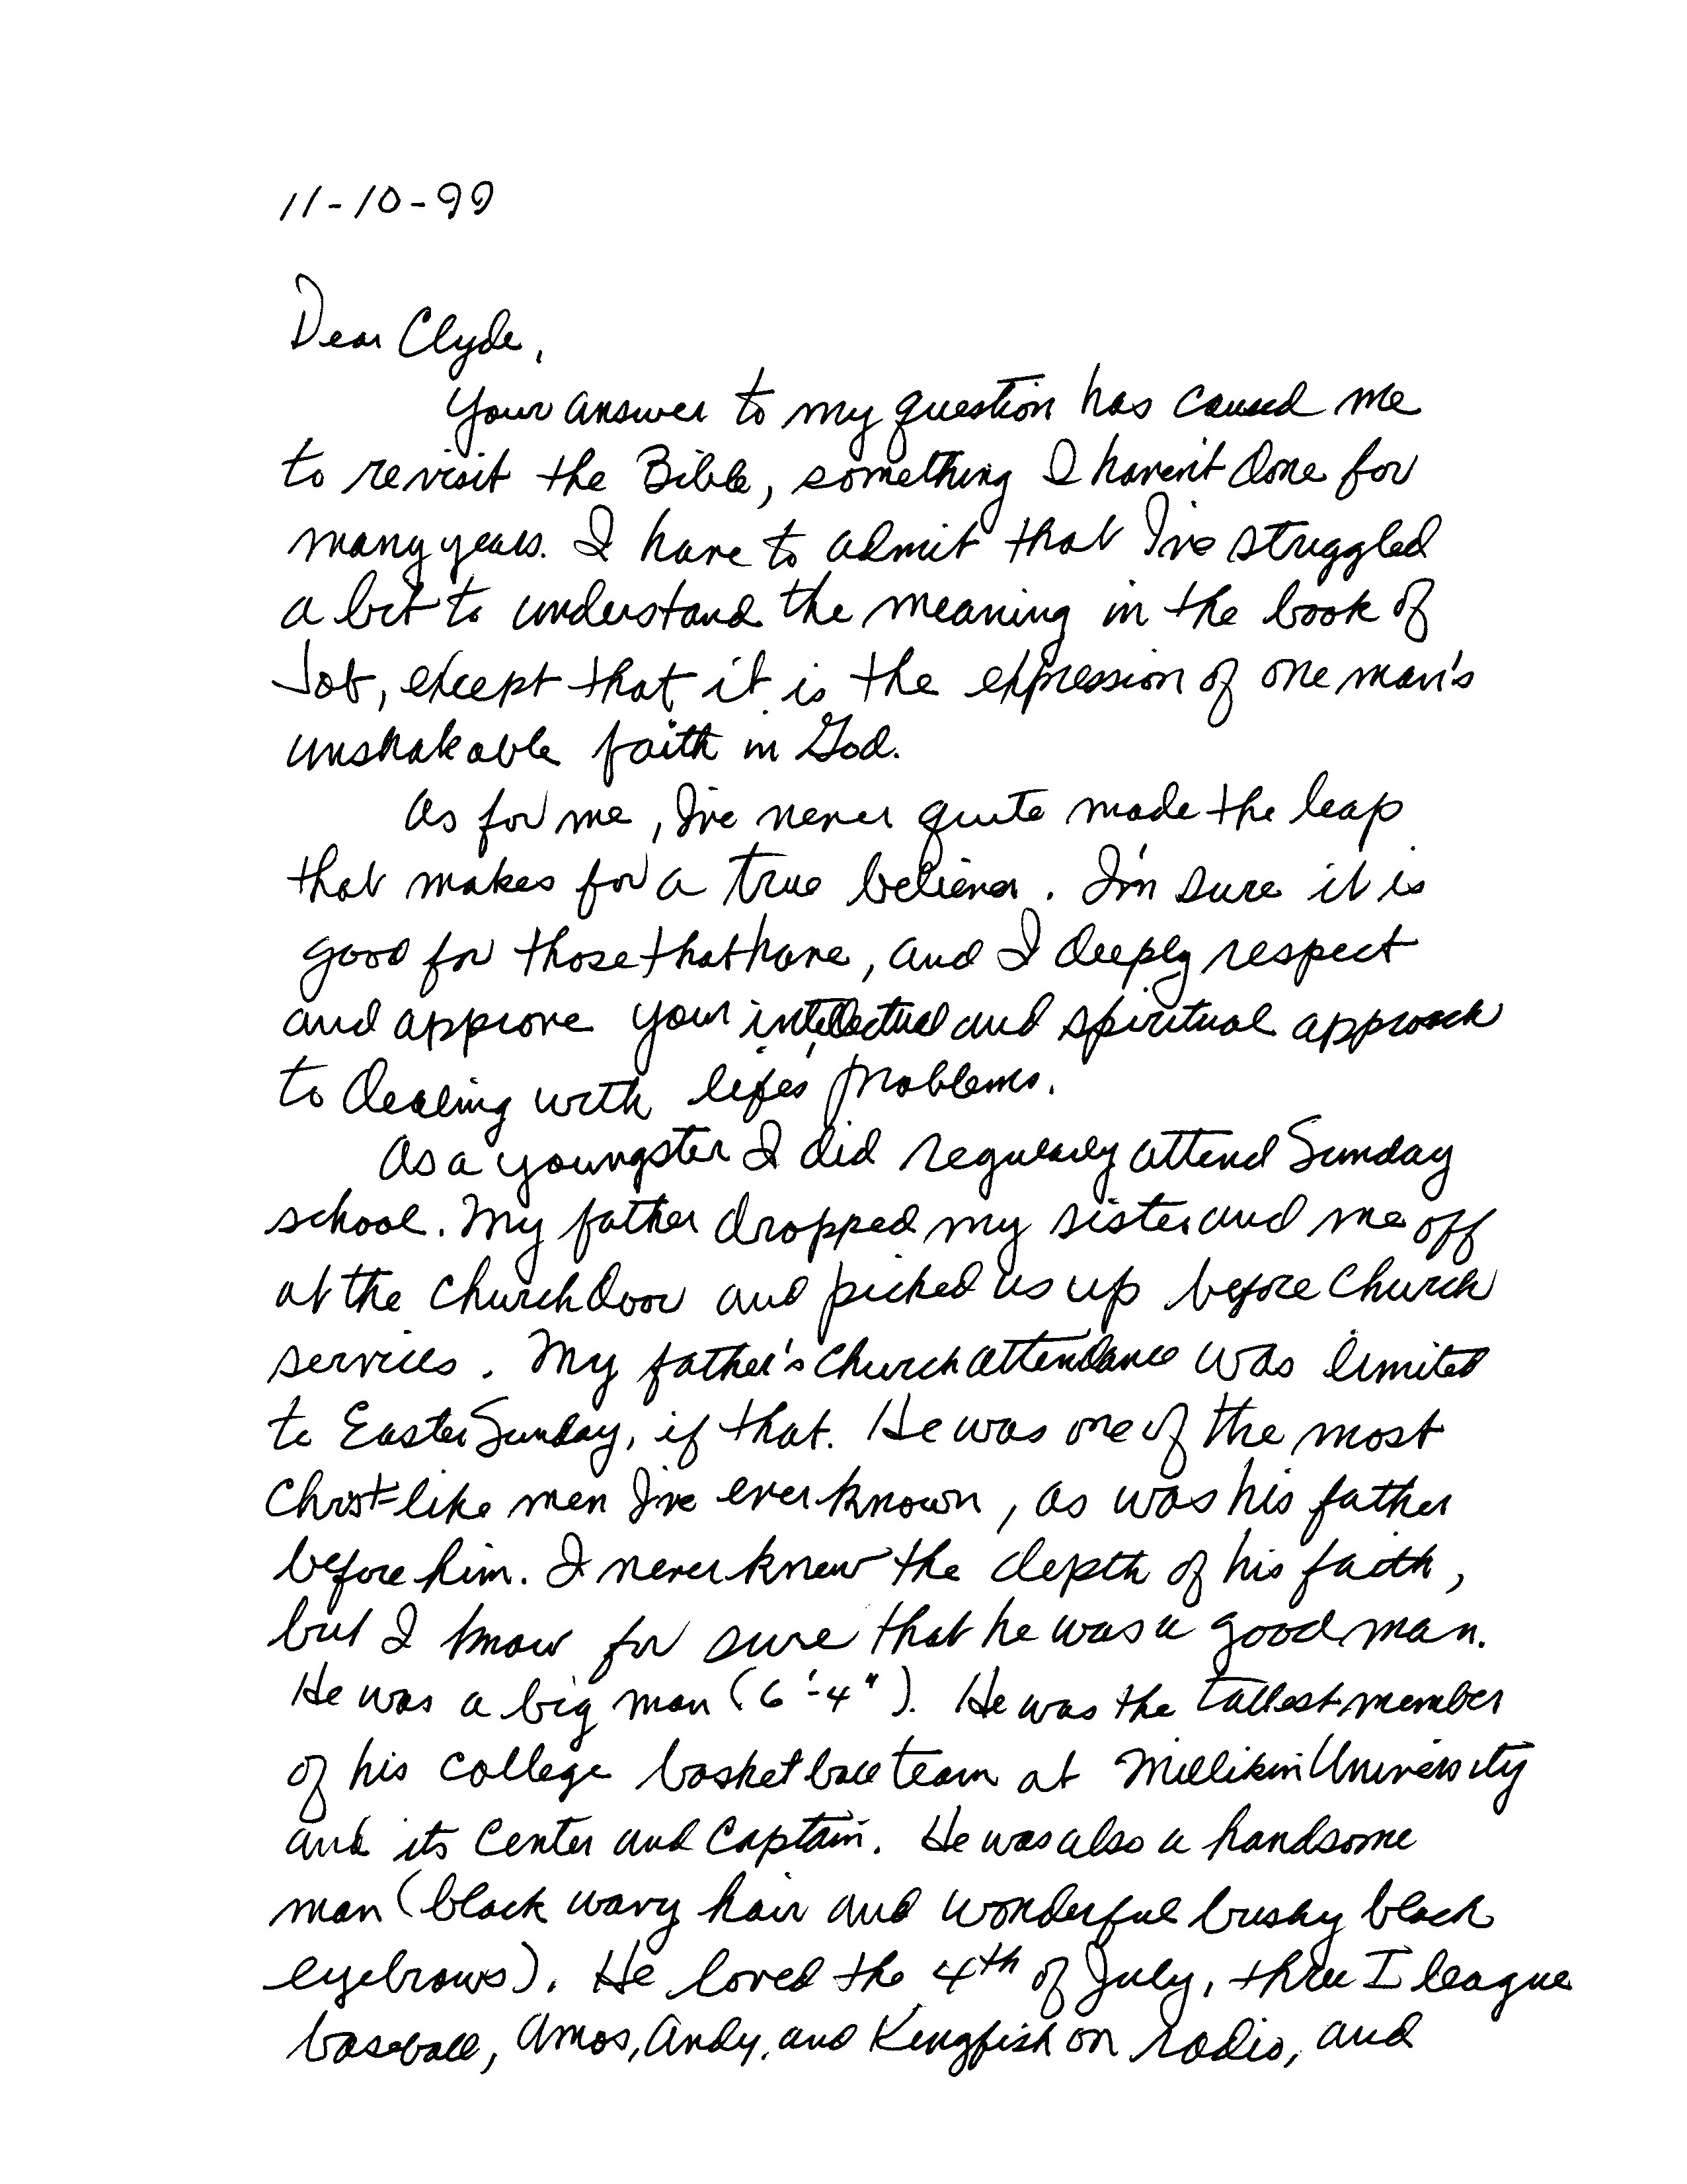 11-10-99
Dear Clyde,
Your answer to my question has caused me
to revisit the Bible, something I haven't done for
many years. I have to admit that I've struggled
a bit to understand the meaning in the book of
Job, except that it is the expression of one man's
unshakable faith in God.
As for me, I've never quite made the leap
that makes for a true believer. I'm sure it is
good for those that have, and I deeply respect
and approve your intellectual and spiritual approach
to dealing with life's problems.
As a youngster I did regularly attend Sunday
school. My father dropped my sister and me off
at the church door and picked us up before church
services. My father's church attendance was limited
to Easter Sunday, if that. He was one of the most
Christ-like men I've ever known, as was his father
before him. I never knew the depth of his faith,
but I know for sure that he was a good man.
He was a big man (6'-4"). He was the tallest member
of his college basketball team at Millikin University
and its Center and Captain. He was also a handsome
man (black wavy hair and wonderful bushy black
eyebrows). He loved the 4th of July, three I league
baseball, Amos, Andy, and Kingfish on radio, and